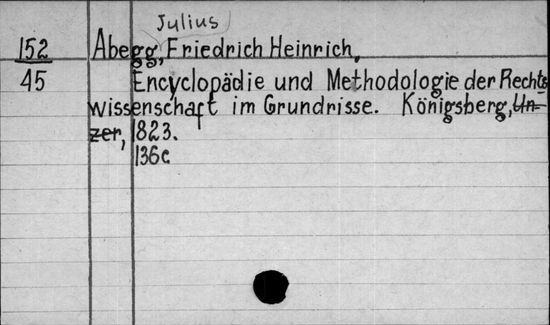 Julius
152 Abegg, Friedrich Heinrich,
45 Encyclopädie und Methodologie der Rechts
wissenschaft im Grundrisse. Königsberg, Un-
zer, 1823.
136c